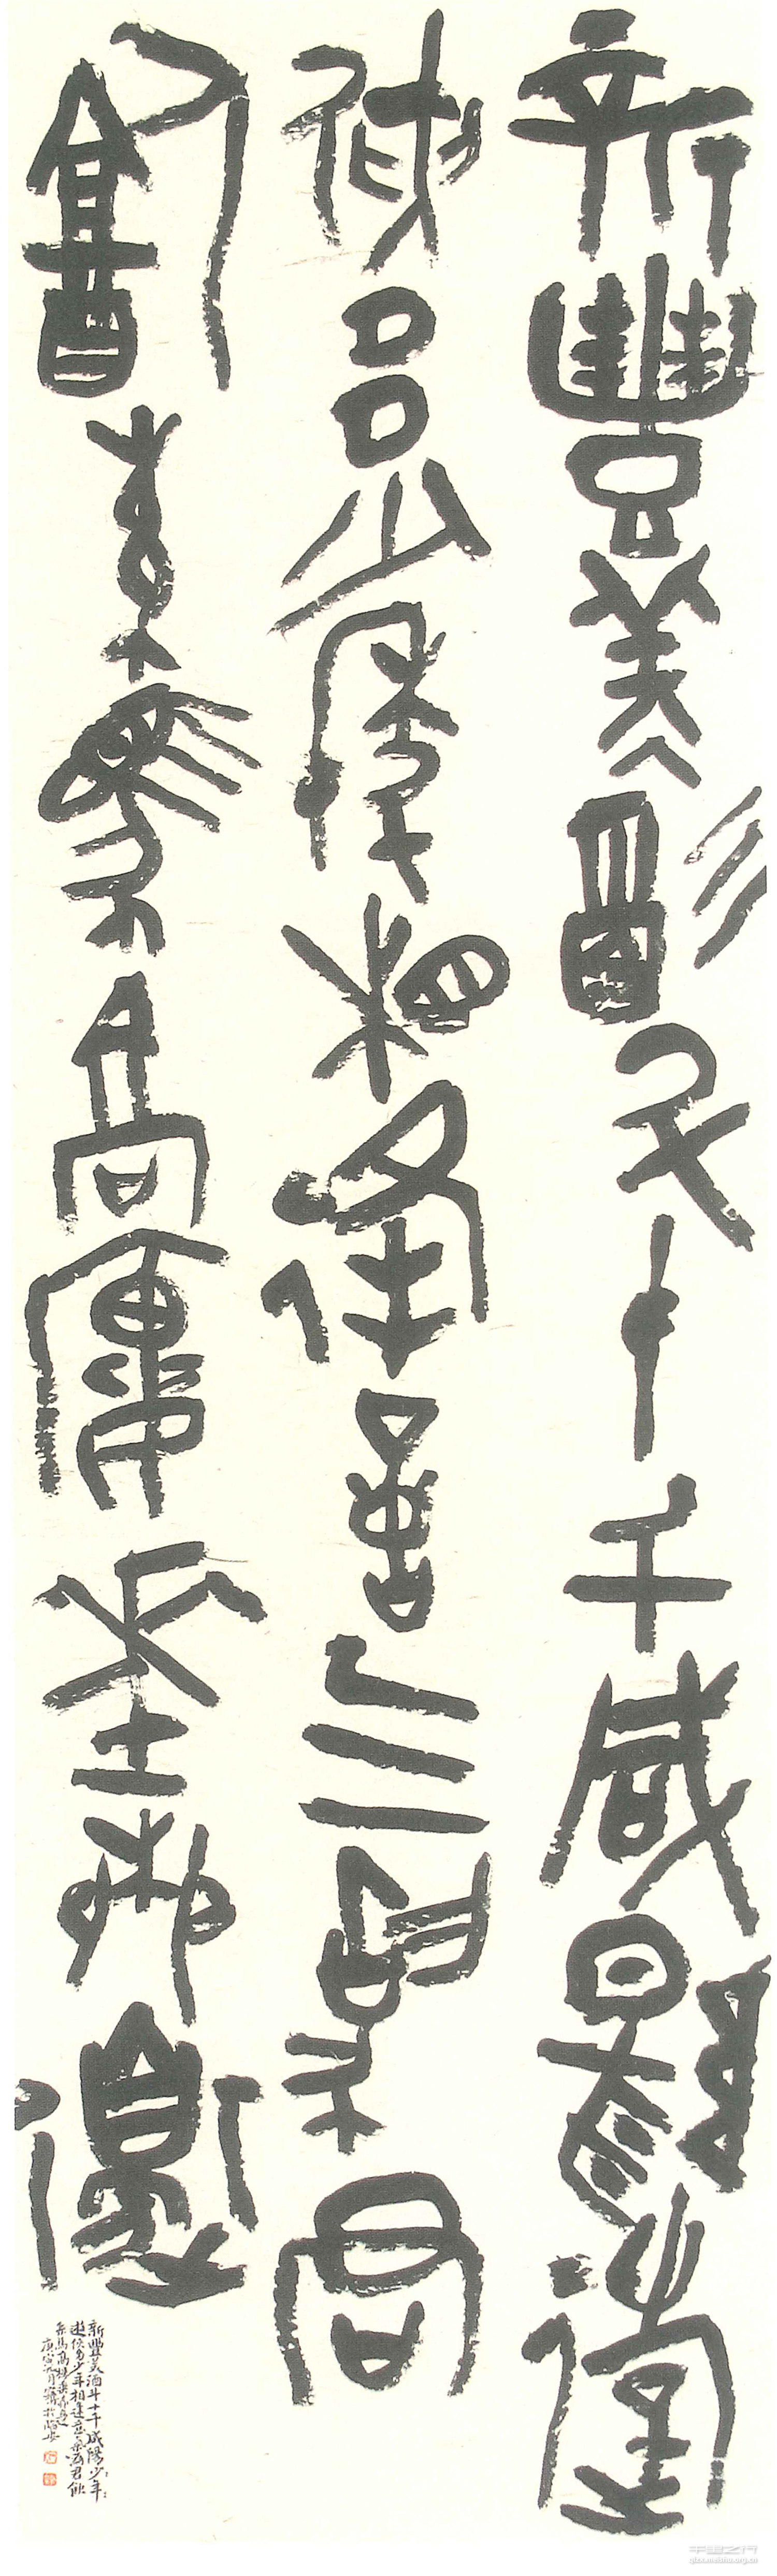 新豐美酒斗十千咸陽遊
俠多少年相逢意气為君
飲系馬高樓垂柳邊
新豐美酒斗十千咸陽少年
遊俠多少年相逢意氣為君飲
系馬高樓垂柳邊
庚寅月於臨安